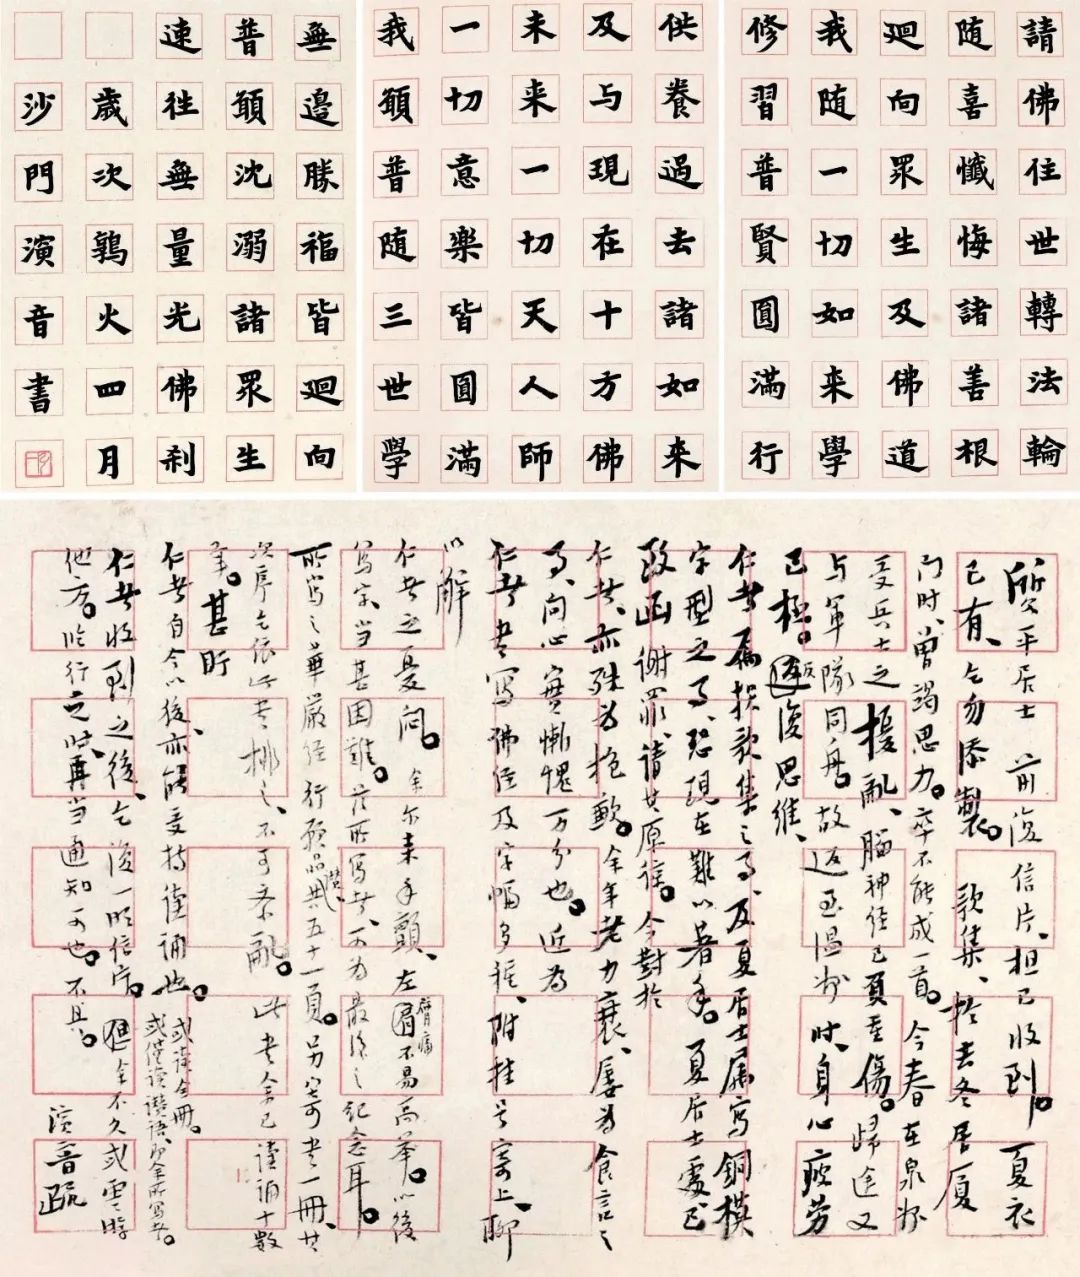 請佛住世轉法輪
随喜懺悔諸善根
廻向眾生及佛道
我随一切如来學
修習普賢圓滿行
供養過去諸如来
及与現在十方佛
未来一切天人師
一切意樂皆圓滿
我願普随三世學
無邊勝福皆廻向
普願沈溺諸眾生
速往無量光佛剎
歲次鶉火四月
沙門演音書
質平居士 前後信片、担已收到。夏衣
已有、乞勿添製。歌集、於去冬居厦
门时、曾竭思力。卒不能成一首。今春在泉州
受兵士之擾亂、腦神経已負重傷。歸途又
与軍隊同舟。故返至温州時、身心疲劳
已極。反復思維、
仁者属撰歌集之事、及夏居士属寫銅模
字型之事、恐現在難以着手。夏居士處已
致函谢罪、请其原谅。今對於
仁者、亦殊为抱歉。余年老力衰、屡为食言之
事、向心實慚愧万分也。近為
仁者书寫佛经及字幅多種、附挂号寄上、聊
以解
仁者之憂闷。余尔来手顫、左臂痛不易高举。以後
寫字、当甚困難。兹所寫者、可为最後之纪念耳。
所寫之華嚴经行願品讚共五十一頁。另寄书一冊、其
次序乞依此书排之、不可紊亂。此书余已讀誦十數
年。甚盼
仁者自今以後、亦能受持读誦也。或读全冊。或僅读讚语、即余所寫者。
仁者收到之後、乞復一明信片。余不久或雲游
他方。临行之時、再当通知可也。不具。 演音疏